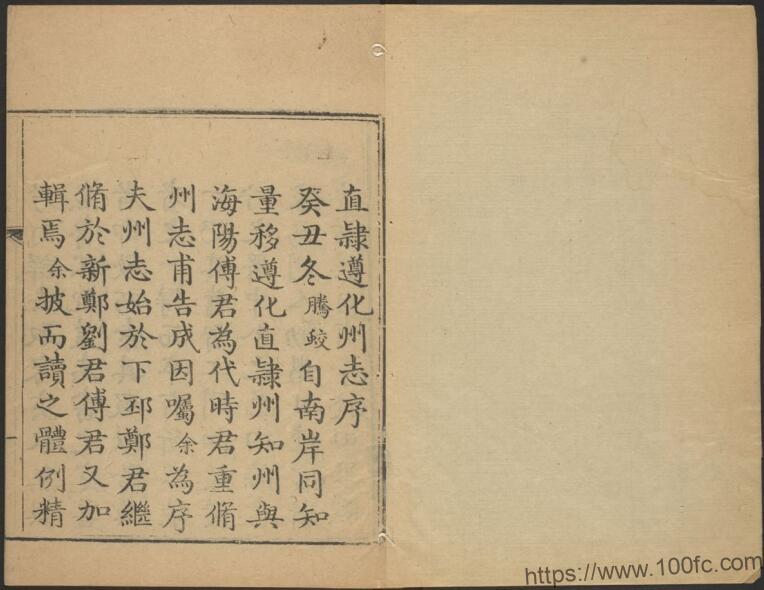 直隸遵化州志序
癸丑冬騰蛟自南岸同知
量移遵化直隸州知州與
海陽傅君為代時君重脩
州志甫告成因囑余為序
夫州志始於下邳鄭君繼
脩於新鄭劉君傅君又加
輯焉余披而讀之體例精
https://www.100fc.com